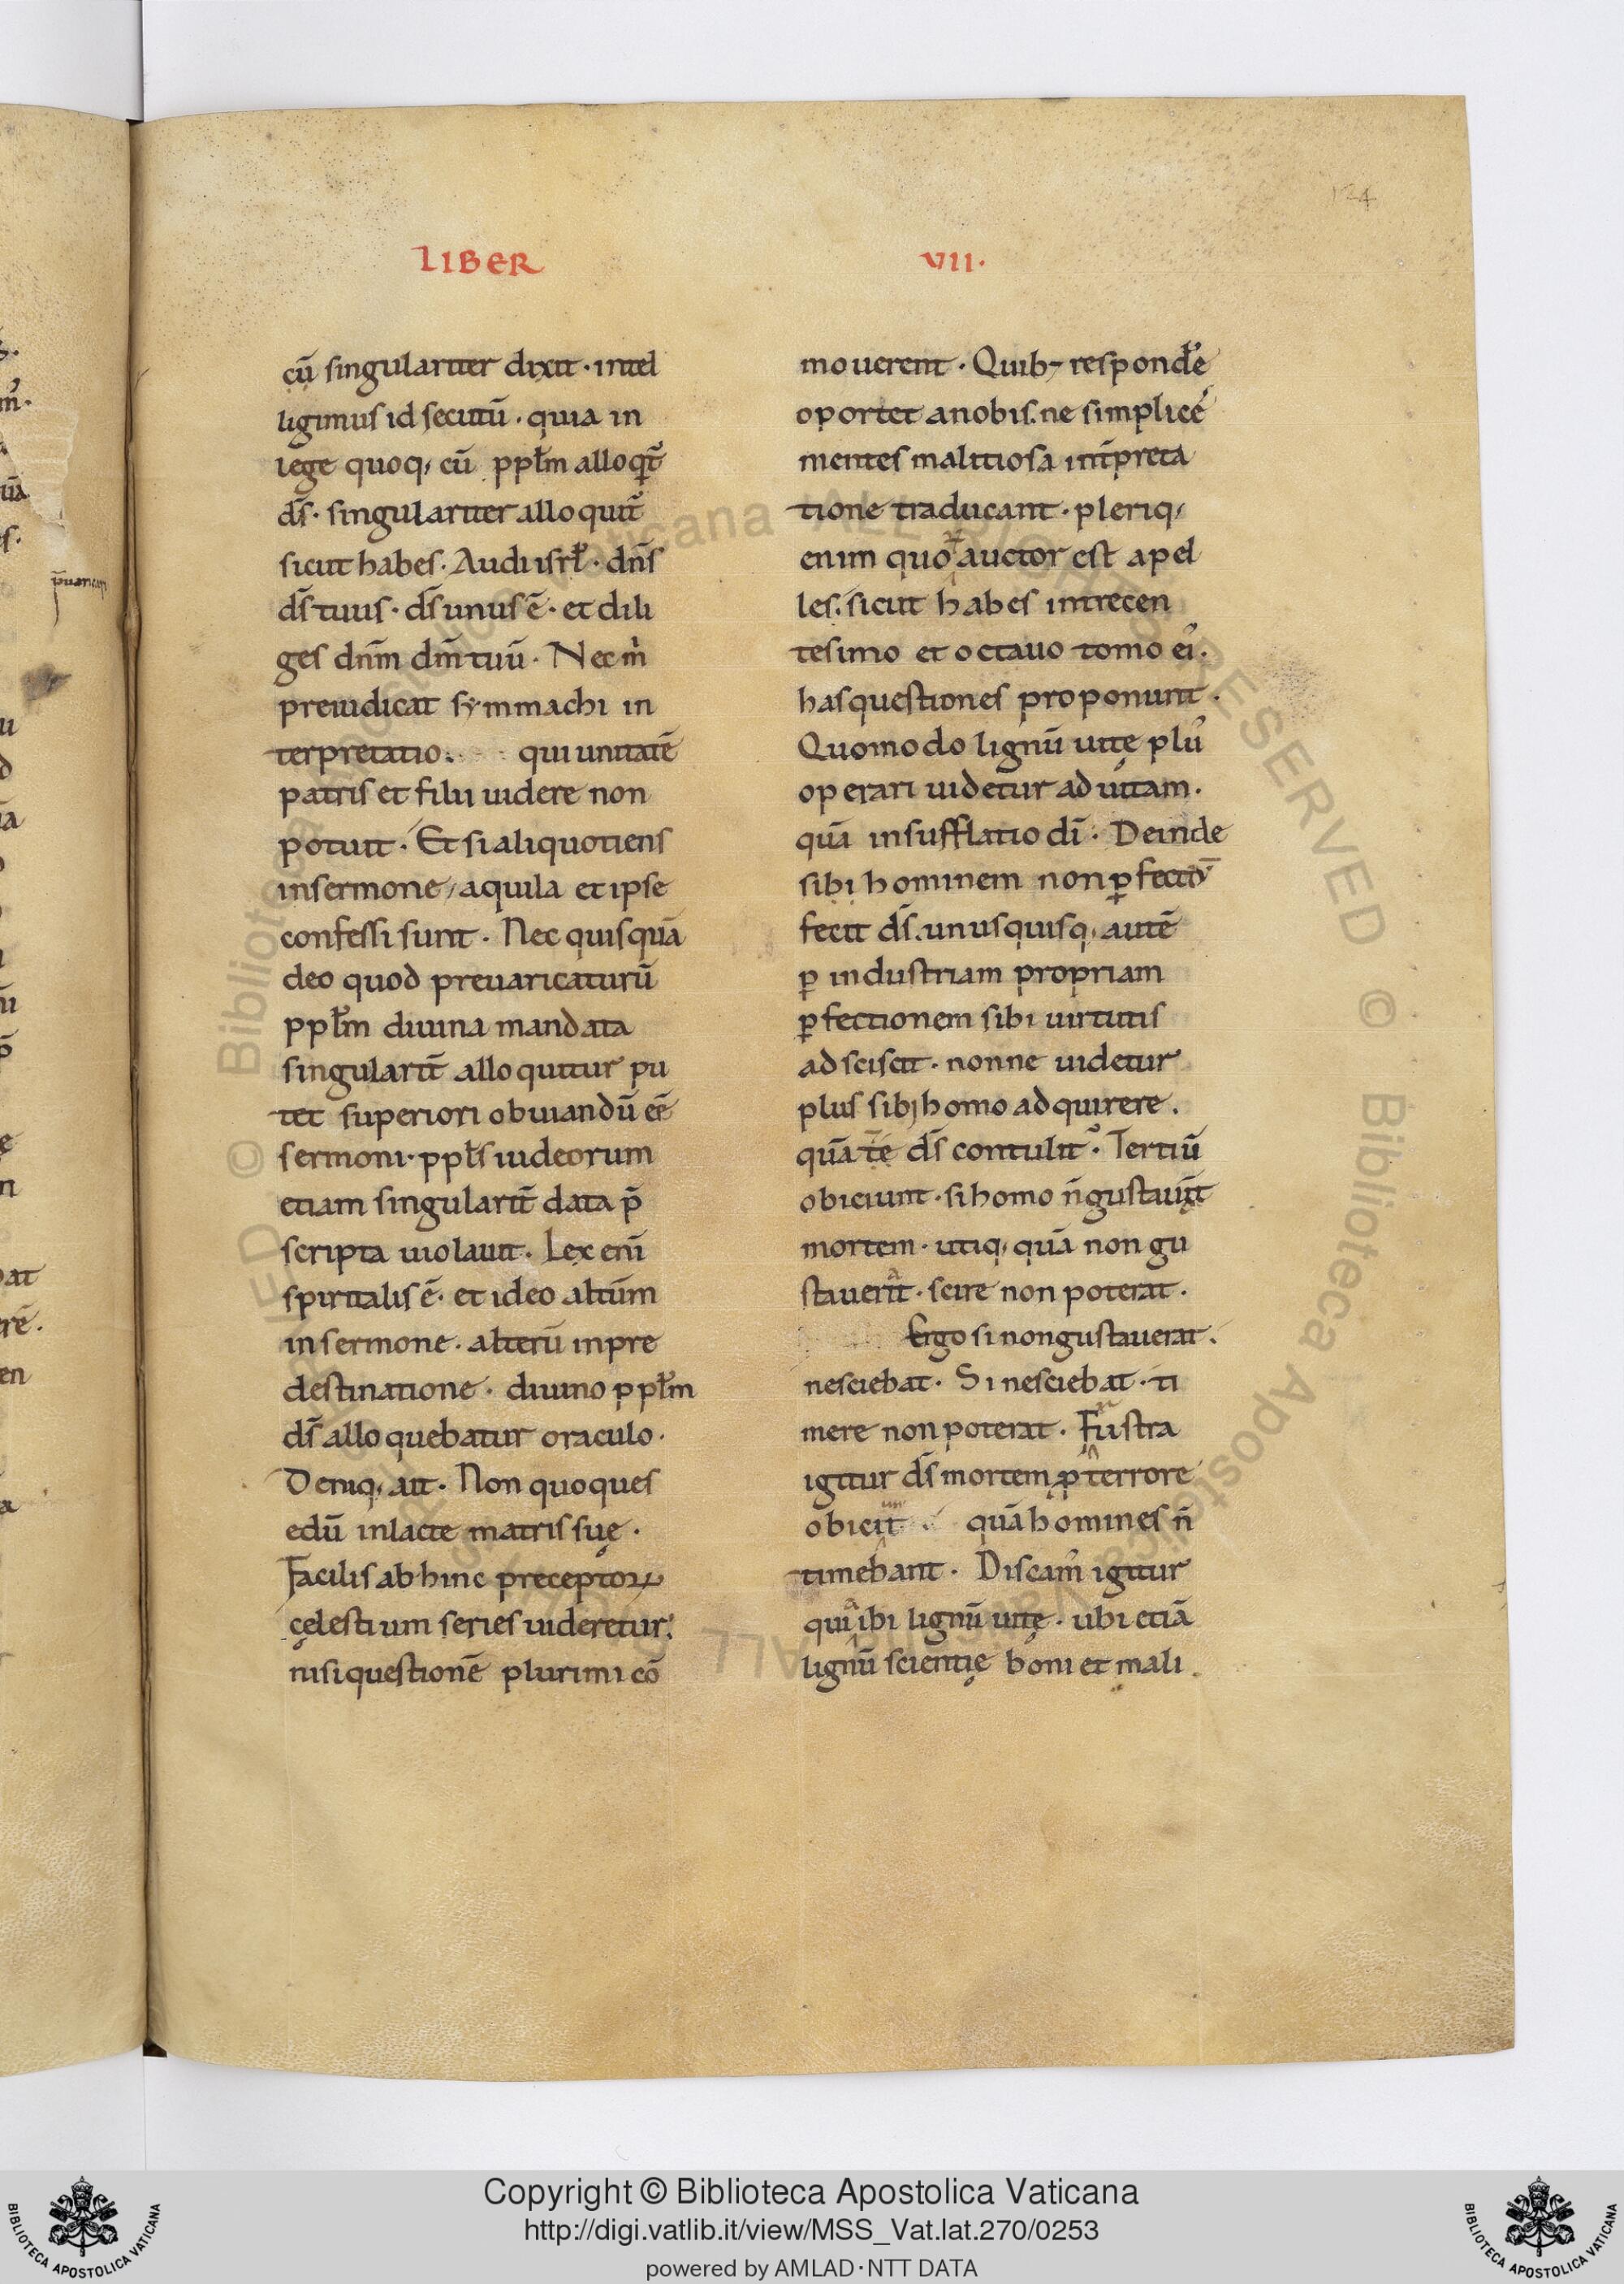 124
LIBER VII·
cū singulariter dixit · intel
ligimus id secutū · quia in
lege quoq; cū ppl̄m alloqt̄
ds̄ · singulariter alloquit̄
sicut habes · Audi isrl̄ · dn̄s
ds̄ tuus · ds̄ unus ē · et dili
ges dn̄m dm̄ tuū · Nec m̄
preiudicat symmachi in
terpretatio · qui unitatē
patris et filii uidere non
potuit · Et si aliquotiens
in sermone, aquila et ipse
confessi sunt · Nec quisquā
deo quod preuaricaturū
ppl̄m diuina mandata
singularit̄ alloquitur pu
tet superiori obuiandū eē
sermoni · ppl̄s iudeorum
etiam singularit̄ data p̄
scripta uiolauit · Lex eni̅
spiritalis ē · et ideo altūm
in sermone · alterū in pre
destinatione · diuino ppl̄m
ds̄ alloquebatur oraculo ·
Deniq; ait · Non quoques
edū in lacte matris suę ·
Facilis ab hinc preceptoꝝ
cęlestium series uideretur ·
nisi questionē plurimi cō
mouerent · Quib; respondɇ̄
oportet a nobis · ne simplices
mentes malitiosa int̄preta
tione traducant · pleriq;
enim quoꝝ auctor est apel
les · sicut habes in trecen
tesimo et octauo tomo ei᾽ ·
has questiones proponunt ·
Quomodo lignū uitę pl᾽
operari uidetur ad uitam ·
quā insufflatio dī · Deinde
si bi hominem non ꝑfectū
fecit ds̄ · unusquisq; autē
ꝑ industriam propriam
ꝑfectionem sibi uirtutis
adsciscit · nonne uidetur
plus sibi homo adquirere ·
quā ē ds̄ contulit · Tertiū
obiciunt · si homo n̄ gustauat
mortem · utiq; quā non gu
stauerat · scire non poterat ·
Ergo si non gustauerat ·
nesciebat · Si nesciebat · ti
mere non poterat · Frustra
igitur ds̄ mortem ꝓ terrore
obicit · quā homines n̄
timebant · Discam᾽ igitur
quia ibi lignū uitę · ubi etiā
lignū scientię boni et mali ·
Copyright © Biblioteca Apostolica Vaticana
http://digi.vatlib.it/view/MSS_Vat.lat.270/0253
powered by AMLAD·NTT DATA
BIBLIOTECA APOSTOLICA VATICANA
BIBLIOTECA APOSTOLICA VATICANA